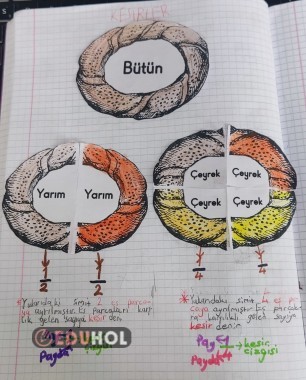 KESİRLER
Bütün
Yarım Yarım
Çeyrek Çeyrek
Çeyrek Çeyrek
1
2
1
2
1
4
1
4
Yukarıdaki simit 2 eş parça
ya ayrılmıştır. Eş parçaları karşı
lık gelen sayıya kesir denir.
* Yukarıdaki simit 4 eş par
çaya ayrılmıştır. Eş parçala
ra karşılık gelen sayıya
kesir denir.
EDUHOL
Payda
Pay 1 → kesir
çizgisi
Payda 4